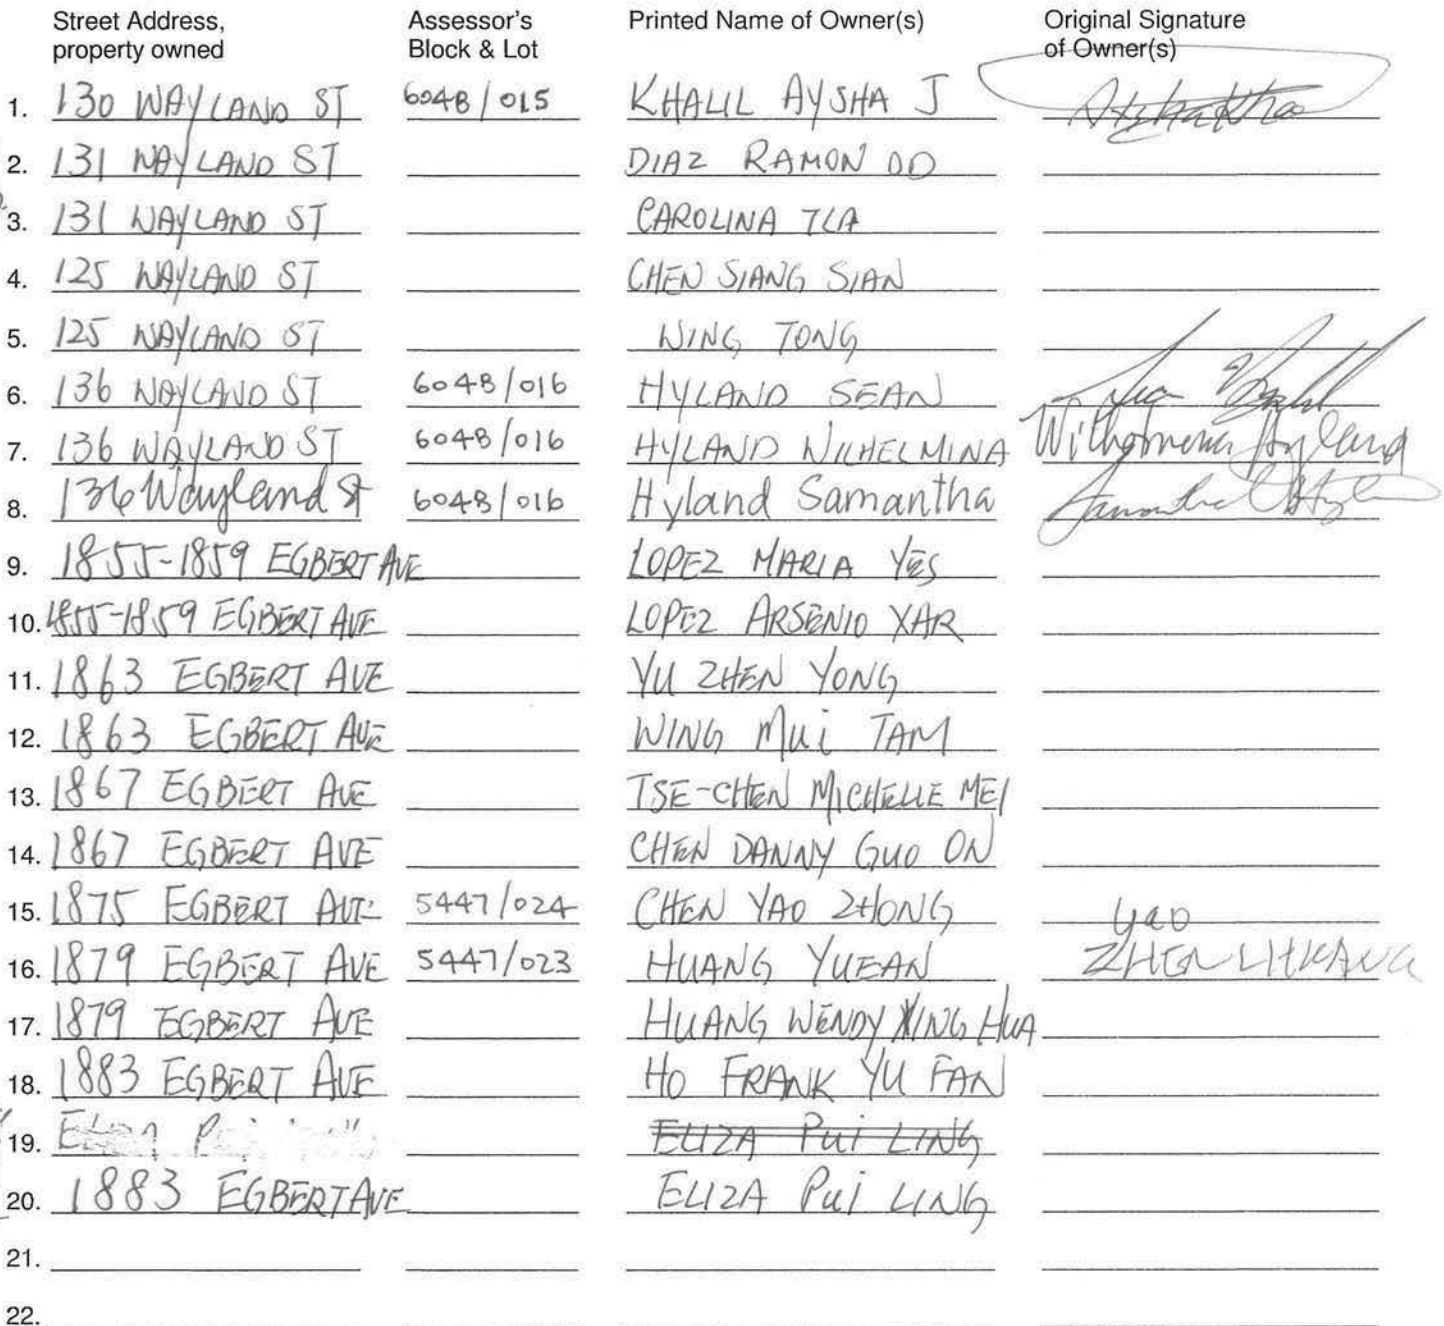 Street Address, property owned Assessor's Block & Lot Printed Name of Owner(s) Original Signature of Owner(s)
1. 130 WAYLAND ST 6048/015 KHALIL AYSHA J
2. 131 WAYLAND ST DIAZ RAMON OD
3. 131 WAYLAND ST CAROLINA TLA
4. 125 WAYLAND ST CHEN SIANG SIAN
5. 125 WAYLAND ST WING TONG
6. 136 WAYLAND ST 6048/016 HYLAND SEAN
7. 136 WAYLAND ST 6048/016 HYLAND WILHELMINA Wilhelmina Hyland
8. 136 Wayland St 6048/016 Hyland Samantha Samantha Hyland
9. 1855-1859 EGBERT AVE LOPEZ MARIA YES
10. 1855-1859 EGBERT AVE LOPEZ ARSENIO XAR
11. 1863 EGBERT AVE YU ZHEN YONG
12. 1863 EGBERT AVE WING MUI TAM
13. 1867 EGBERT AVE TSE-CHEN MICHELLE MEI
14. 1867 EGBERT AVE CHEN DANNY GUO ON
15. 1875 EGBERT AVE 5447/024 CHEN YAO ZHONG yao
16. 1879 EGBERT AVE 5447/023 HUANG YUEAN ZHEN
17. 1879 EGBERT AVE HUANG WENDY XING HUA
18. 1883 EGBERT AVE HO FRANK YU FAN
19. ELIZA PUI LING
20. 1883 EGBERT AVE ELIZA PUI LING
21.
22.